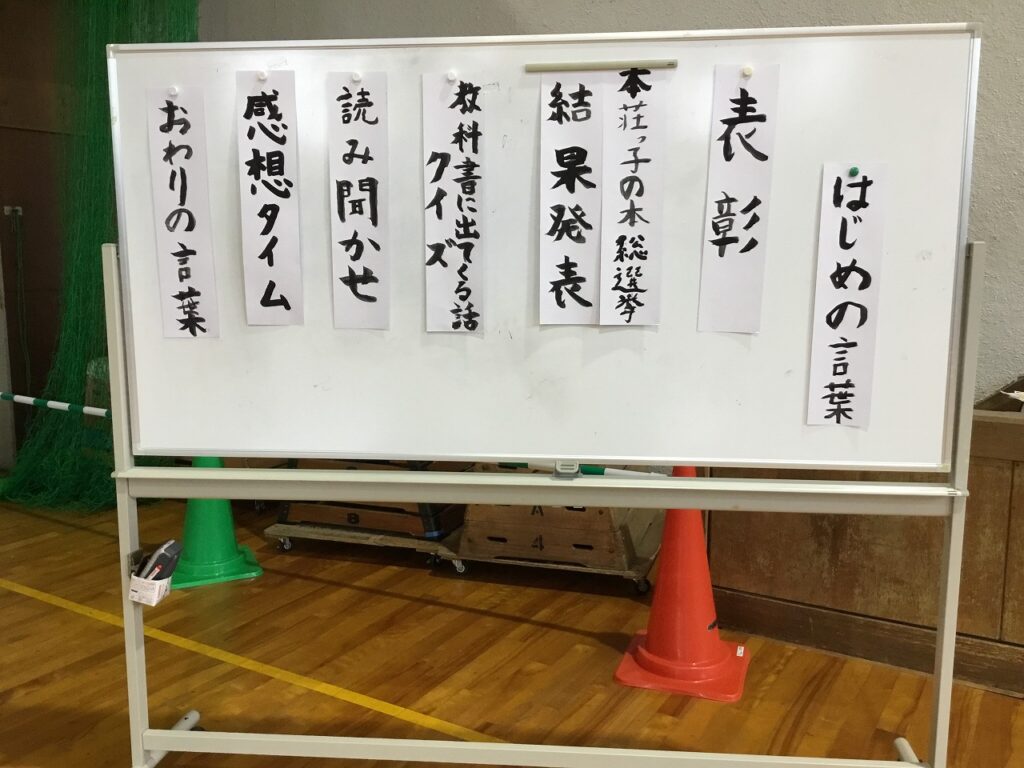 はじめの言葉
表彰
本荘っ子の本総選挙
結果発表
教科書に出てくる話
クイズ
読み聞かせ
感想タイム
おわりの言葉
A
4